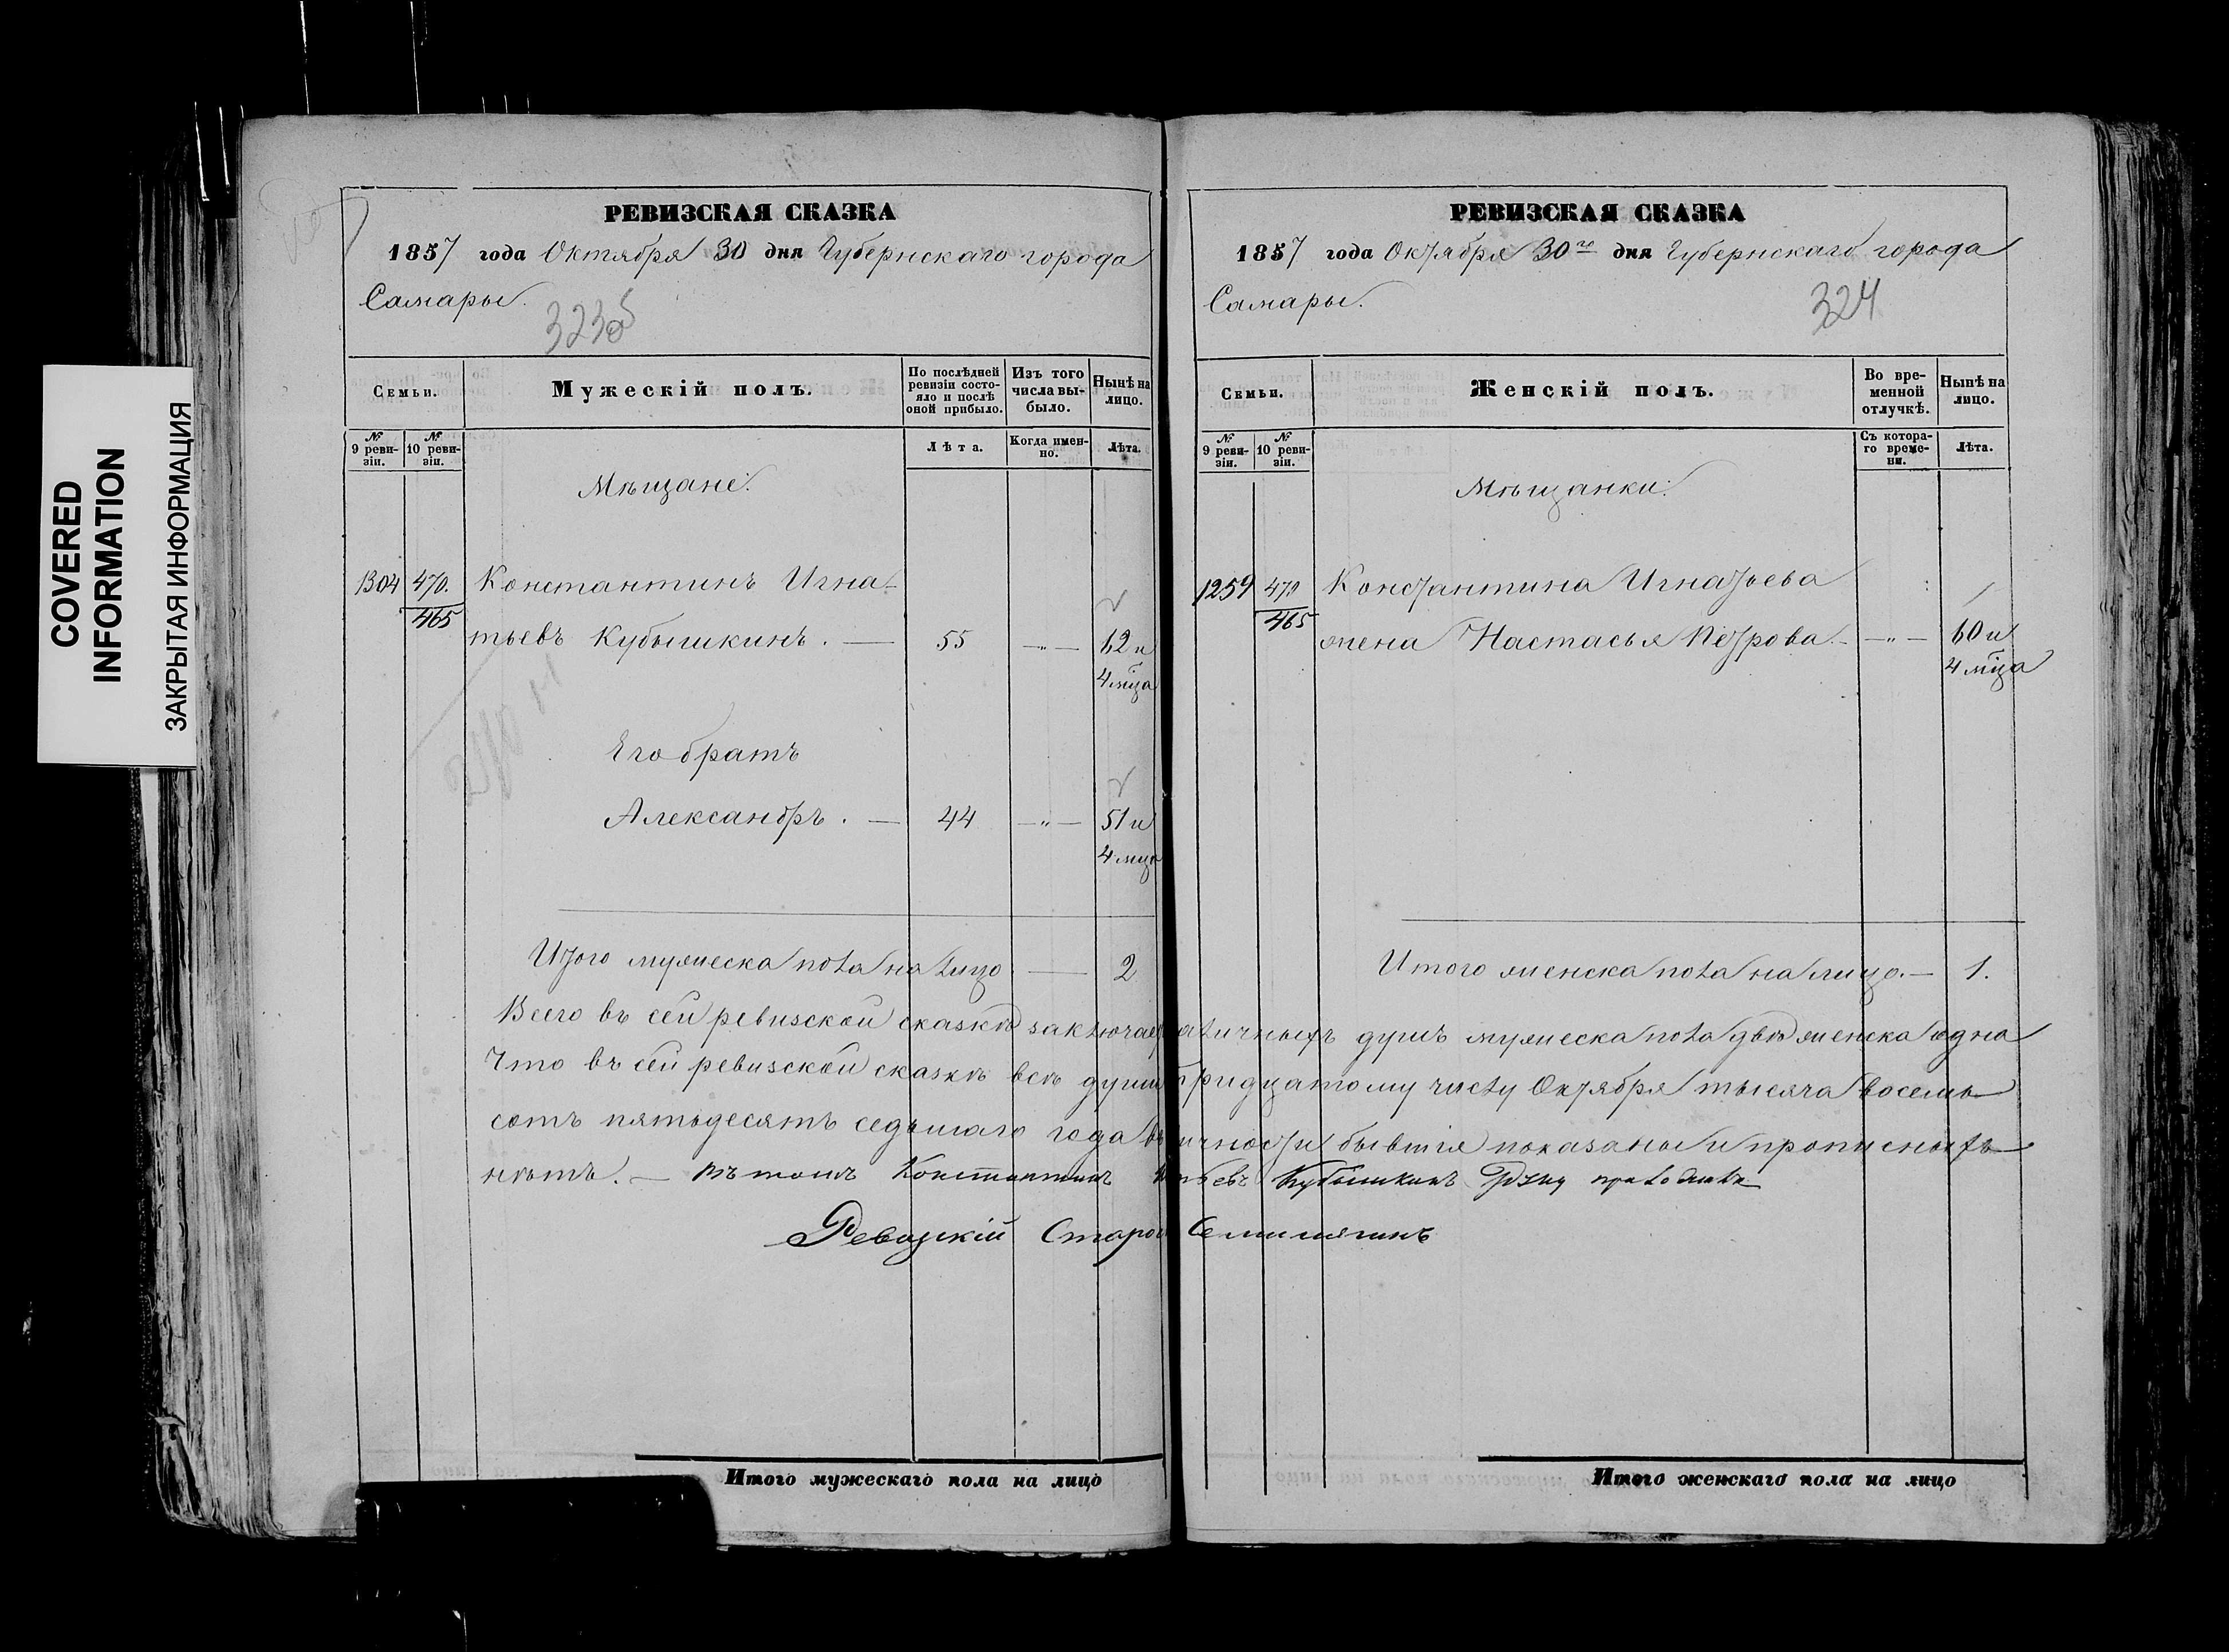 COVERED
INFORMATION
ЗАКРЫТАЯ ИНФОРМАЦИЯ
РЕВИЗСКАЯ СКАЗКА
1857 года Октября 30 дня Губернскаго города
Самары.
323об
Семьи.
Мужескій полъ.
По послѣдней ревизіи состояло и послѣ оной прибыло.
Изъ того числа выбыло.
Нынѣ на лицо.
№ 9 ревизіи.
№ 10 ревизіи.
Лѣта.
Когда именно.
Лѣта.
Мѣщане.
1304 470. Константинъ Игна-
465
тьевъ Кубышкинъ. — 55 —„— 62 и
4 мца
Его братъ
Александръ. — 44 —„— 51 и
4 мца
Итого мужеска пола на лицо — 2
РЕВИЗСКАЯ СКАЗКА
1857 года Октября 30го дня Губернскаго города
Самары.
324
Семьи.
Женскій полъ.
Во временной отлучкѣ.
Нынѣ на лицо.
№ 9 ревизіи.
№ 10 ревизіи.
Съ котораго времени.
Лѣта.
Мѣщанки:
1259 470 Константина Игнатьева
465
жена Настасья Петрова. —„— 60 и
4 мца
Итого женска пола на лицо. — 1.
Всего въ сей ревизской сказкѣ заключает аличныхъ душъ мужеска пола двѣ женска одна
Что въ сей ревизской сказкѣ всѣ души тридцатому числу Октября тысяча восемь
сотъ пятьдесятъ седьмаго года въ ичности бывшія показаны и прописныхъ
нѣтъ. — Въ томъ Константинъ тьевъ Кубышкинъ Руку приложилъ
Ревизскій Старо Семишагинъ
Итого мужескаго пола на лицо
Итого женскаго пола на лицо